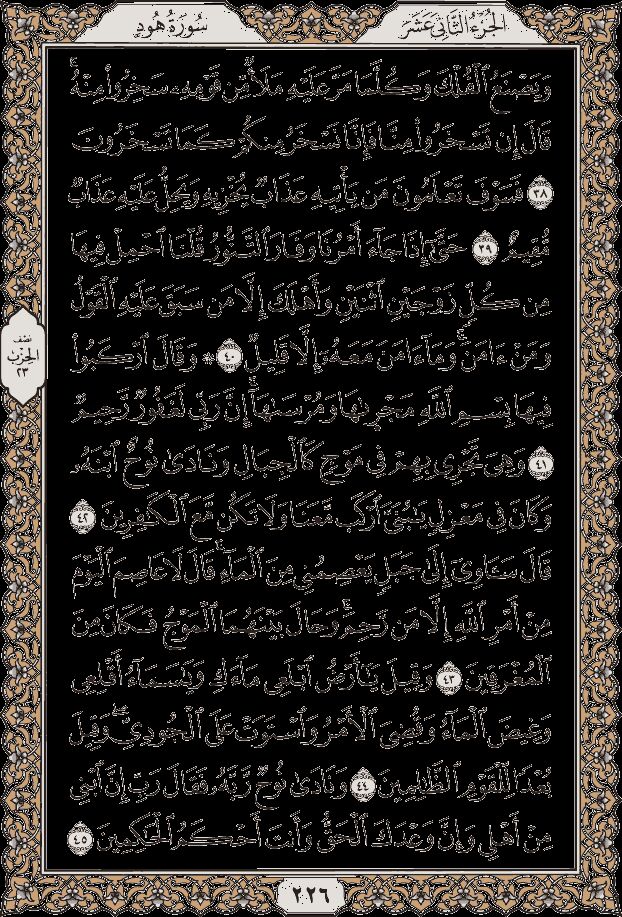 سُورَةُ هُودٍ
الجُزْءُ الثَّانِي عَشَرَ
وَيَصْنَعُ ٱلْفُلْكَ وَكُلَّمَا مَرَّ عَلَيْهِ مَلَأٌ مِّن قَوْمِهِۦ سَخِرُوا۟ مِنْهُ ۚ
قَالَ إِن تَسْخَرُوا۟ مِنَّا فَإِنَّا نَسْخَرُ مِنكُمْ كَمَا تَسْخَرُونَ
٣٨ فَسَوْفَ تَعْلَمُونَ مَن يَأْتِيهِ عَذَابٌ يُخْزِيهِ وَيَحِلُّ عَلَيْهِ عَذَابٌ
مُّقِيمٌ ٣٩ حَتَّىٰٓ إِذَا جَآءَ أَمْرُنَا وَفَارَ ٱلتَّنُّورُ قُلْنَا ٱحْمِلْ فِيهَا
مِن كُلٍّ زَوْجَيْنِ ٱثْنَيْنِ وَأَهْلَكَ إِلَّا مَن سَبَقَ عَلَيْهِ ٱلْقَوْلُ
وَمَنْ ءَامَنَ ۚ وَمَآ ءَامَنَ مَعَهُۥٓ إِلَّا قَلِيلٌ ٤٠ ۞ وَقَالَ ٱرْكَبُوا۟
فِيهَا بِسْمِ ٱللَّهِ مَجْر۪ىٰهَا وَمُرْسَىٰهَآ ۚ إِنَّ رَبِّى لَغَفُورٌ رَّحِيمٌ
٤١ وَهِىَ تَجْرِى بِهِمْ فِى مَوْجٍ كَٱلْجِبَالِ وَنَادَىٰ نُوحٌ ٱبْنَهُۥ
وَكَانَ فِى مَعْزِلٍ يَٰبُنَىَّ ٱرْكَب مَّعَنَا وَلَا تَكُن مَّعَ ٱلْكَٰفِرِينَ ٤٢
قَالَ سَـَٔاوِىٓ إِلَىٰ جَبَلٍ يَعْصِمُنِى مِنَ ٱلْمَآءِ ۚ قَالَ لَا عَاصِمَ ٱلْيَوْمَ
مِنْ أَمْرِ ٱللَّهِ إِلَّا مَن رَّحِمَ ۚ وَحَالَ بَيْنَهُمَا ٱلْمَوْجُ فَكَانَ مِنَ
ٱلْمُغْرَقِينَ ٤٣ وَقِيلَ يَٰٓأَرْضُ ٱبْلَعِى مَآءَكِ وَيَٰسَمَآءُ أَقْلِعِى
وَغِيضَ ٱلْمَآءُ وَقُضِىَ ٱلْأَمْرُ وَٱسْتَوَتْ عَلَى ٱلْجُودِىِّ ۖ وَقِيلَ
بُعْدًا لِّلْقَوْمِ ٱلظَّٰلِمِينَ ٤٤ وَنَادَىٰ نُوحٌ رَّبَّهُۥ فَقَالَ رَبِّ إِنَّ ٱبْنِى
مِنْ أَهْلِى وَإِنَّ وَعْدَكَ ٱلْحَقُّ وَأَنتَ أَحْكَمُ ٱلْحَٰكِمِينَ ٤٥
نِصْف
الحِزْب
٢٣
٢٢٦